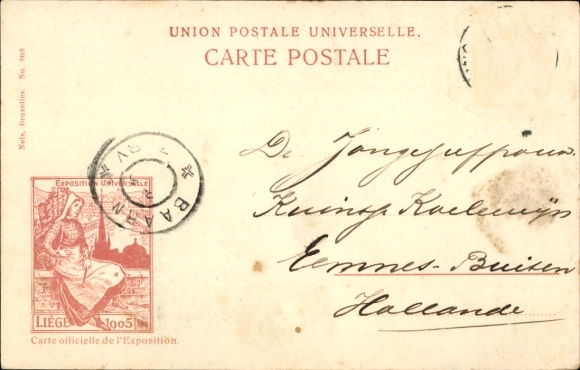 UNION POSTALE UNIVERSELLE.
CARTE POSTALE
Nels, Bruxelles. No. 868
BAARN
De Jongejuffrouw
Koelewijn
Eemnes-Buiten
Hollande
EXPOSITION UNIVERSELLE
LIÉGE 1905
Carte officielle de l'Exposition.